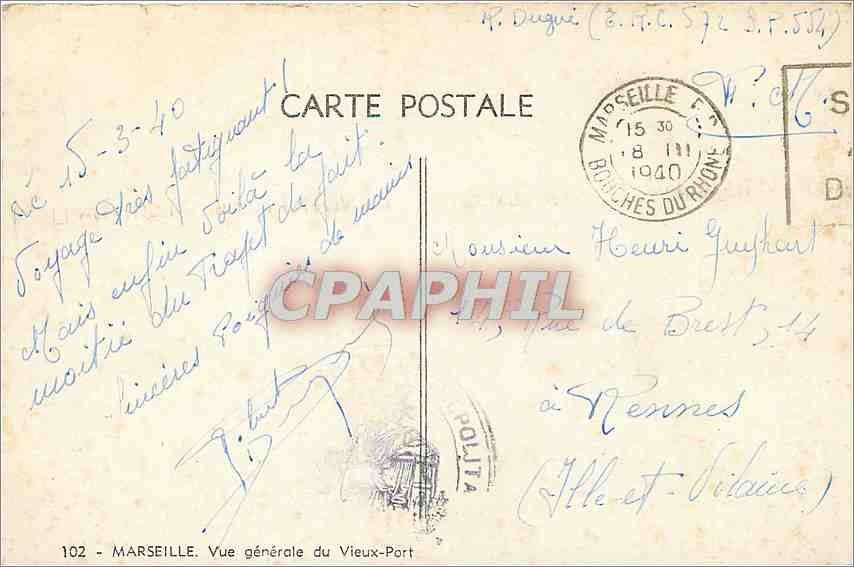 R. Dugué (E.M.C. 572 S.P. 554)
CARTE POSTALE
F.M.
MARSEILLE
15 30
8 III
1940
BOUCHES DU RHONE
S
D
Le 15-3-40
Voyage très fatiguant!
Mais enfin voilà la
moitié du trajet de fait.
Sincères Poignées de mains
Monsieur Henri
Rue de Brest, 14
à Rennes
(Ille-et-Vilaine)
CPAPHIL
POLITA
102 - MARSEILLE. Vue générale du Vieux-Port